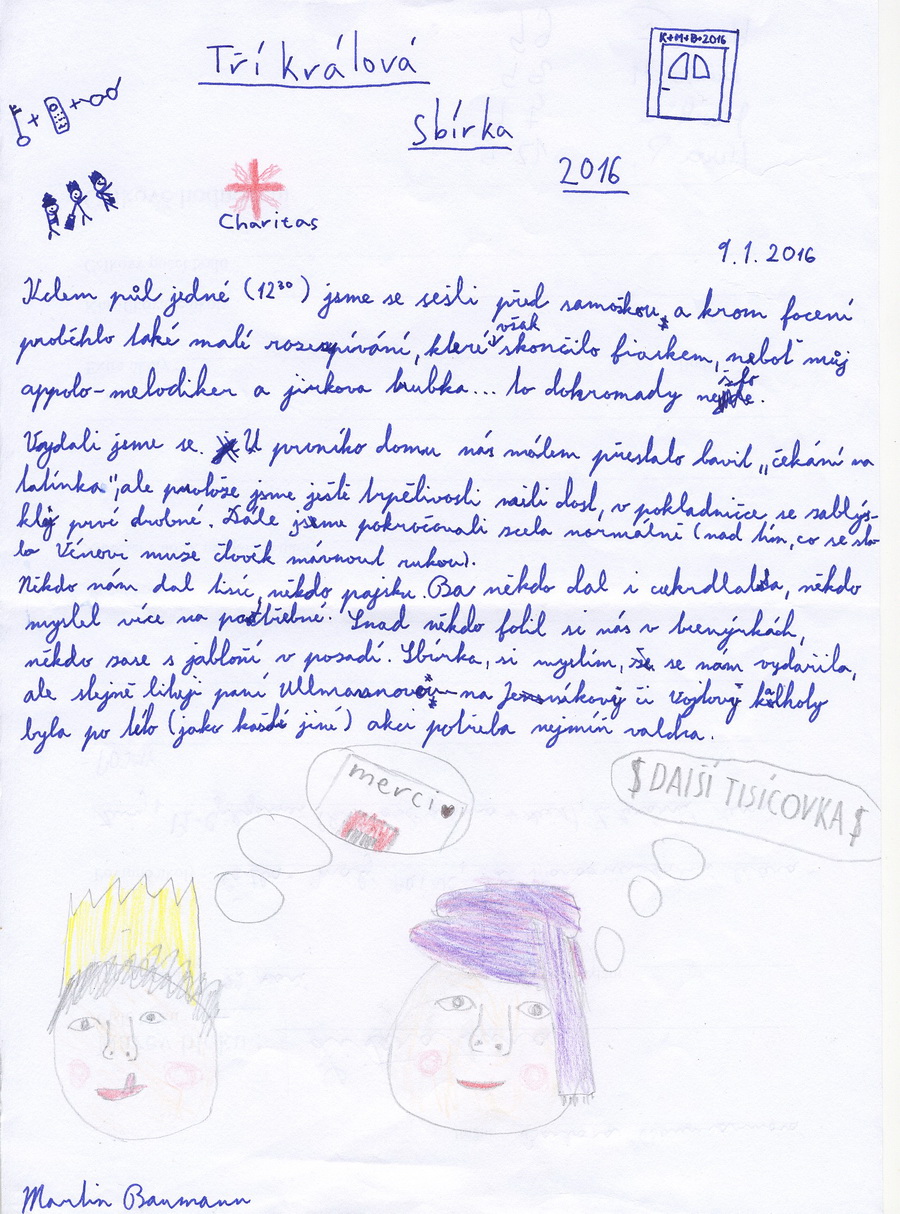 Tříkrálová
K+M+B+2016
Sbírka
2016
Charitas
9.1.2016
Kolem půl jedné (12³⁰) jsme se sešli před samoškou, a krom focení
proběhlo také malé rozezpívání, které však skončilo fiaskem, neboť můj
appolo-melodiker a jirkova trubka... to dokromady nešlo.
Vydali jsme se. U prvního domu nás málem přestalo bavit „čekání na
tatínka", ale protože jsme ještě trpělivosti měli dost, v pokladničce se zablýs-
kly prvé drobné. Dále jsme pokračovali zcela normálně (nad tím, co se sta-
lo Vénovi muže člověk mávnout rukou).
Někdo nám dal tisíc, někdo pajsku. Ba někdo dal i cukrdlata, někdo
myslel více na potřebné. Snad někdo fotil si nás v brenýrkách,
někdo zase s jabloní v pozadí. Sbírka, si myslím, se nam vydařila,
ale stejně lituji paní Ullmannovou na Jesenákový či Vojtový kalhoty
byla po této (jako každé jiné) akci potřeba nejmín valcha.
merci
$ DALŠÍ TISÍCOVKA $
Martin Baumann